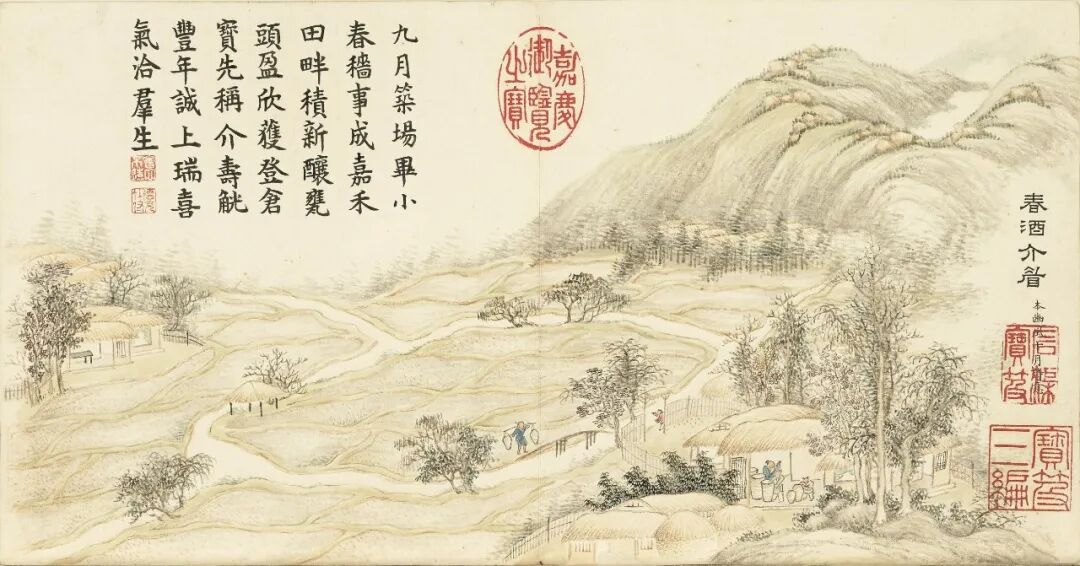 春酒介眉
石渠寶笈
寶笈三編
嘉慶御覽之寶
九月築場畢小
春穡事成嘉禾
田畔積新釀甕
頭盈欣獲登倉
寶先稱介壽觥
豐年誠上瑞喜
氣洽羣生